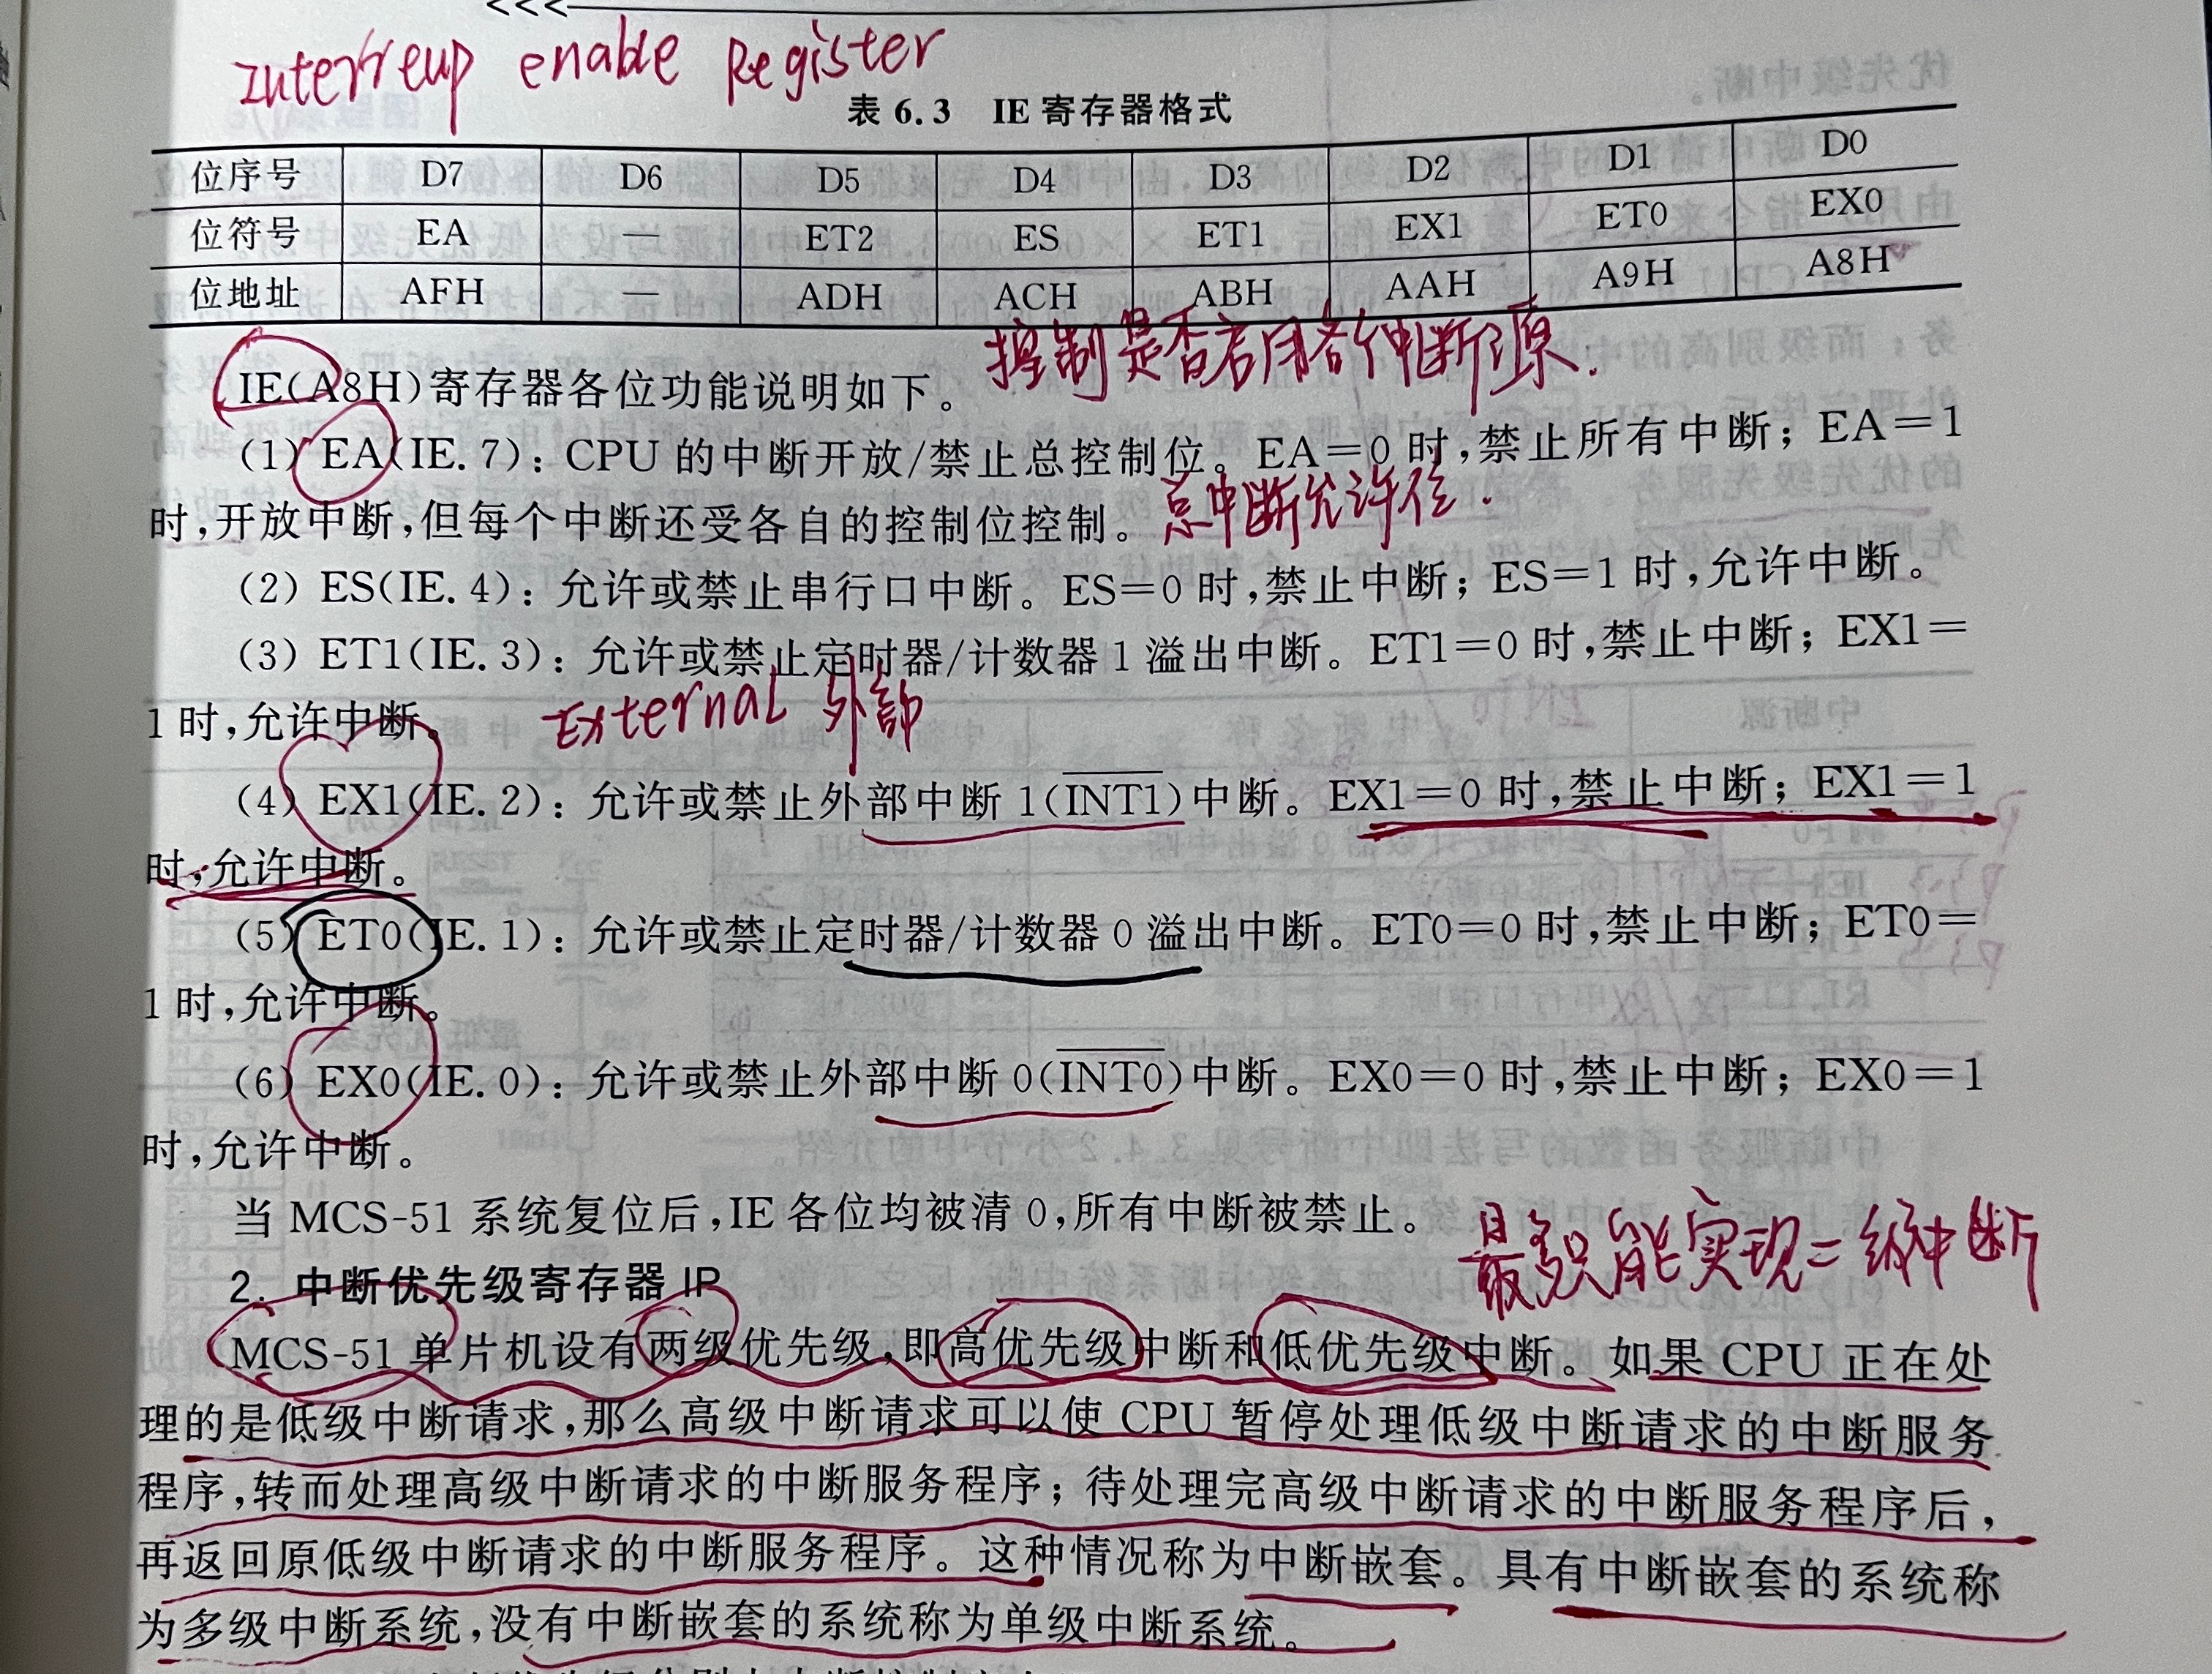 <<<
Interreup enable Register
表 6.3 IE 寄存器格式
位序号 D7 D6 D5 D4 D3 D2 D1 D0
位符号 EA — ET2 ES ET1 EX1 ET0 EX0
位地址 AFH — ADH ACH ABH AAH A9H A8H
控制是否启用各个中断源.
IE(A8H)寄存器各位功能说明如下。
(1) EA(IE.7):CPU 的中断开放/禁止总控制位。EA=0 时,禁止所有中断;EA=1
时,开放中断,但每个中断还受各自的控制位控制。
总中断允许位.
(2) ES(IE.4):允许或禁止串行口中断。ES=0 时,禁止中断;ES=1 时,允许中断。
(3) ET1(IE.3):允许或禁止定时器/计数器 1 溢出中断。ET1=0 时,禁止中断;EX1=
1 时,允许中断。
External 外部
(4) EX1(IE.2):允许或禁止外部中断 1(INT1)中断。EX1=0 时,禁止中断;EX1=1
时,允许中断。
(5) ET0(IE.1):允许或禁止定时器/计数器 0 溢出中断。ET0=0 时,禁止中断;ET0=
1 时,允许中断。
(6) EX0(IE.0):允许或禁止外部中断 0(INT0)中断。EX0=0 时,禁止中断;EX0=1
时,允许中断。
当 MCS-51 系统复位后,IE 各位均被清 0,所有中断被禁止。
最多只能实现二级中断
2. 中断优先级寄存器 IP
MCS-51 单片机设有两级优先级,即高优先级中断和低优先级中断。如果 CPU 正在处
理的是低级中断请求,那么高级中断请求可以使 CPU 暂停处理低级中断请求的中断服务
程序,转而处理高级中断请求的中断服务程序;待处理完高级中断请求的中断服务程序后,
再返回原低级中断请求的中断服务程序。这种情况称为中断嵌套。具有中断嵌套的系统称
为多级中断系统,没有中断嵌套的系统称为单级中断系统。